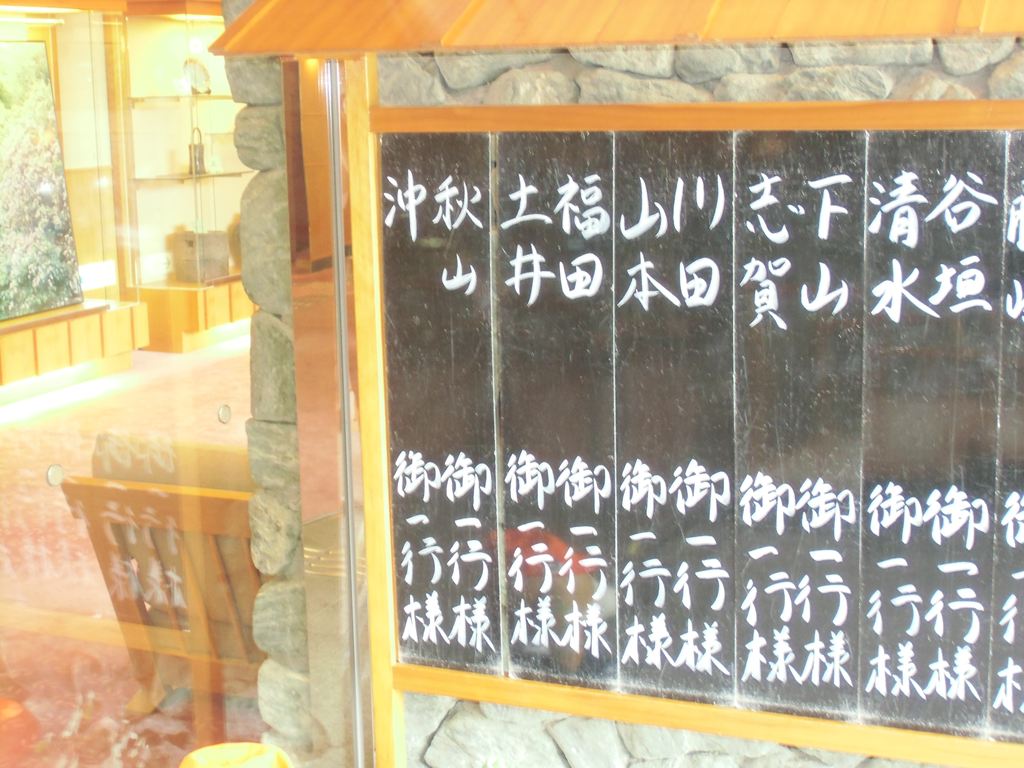 谷垣 御一行様
清水 御一行様
下山 御一行様
志賀 御一行様
川田 御一行様
山本 御一行様
福田 御一行様
土井 御一行様
秋山 御一行様
沖 御一行様